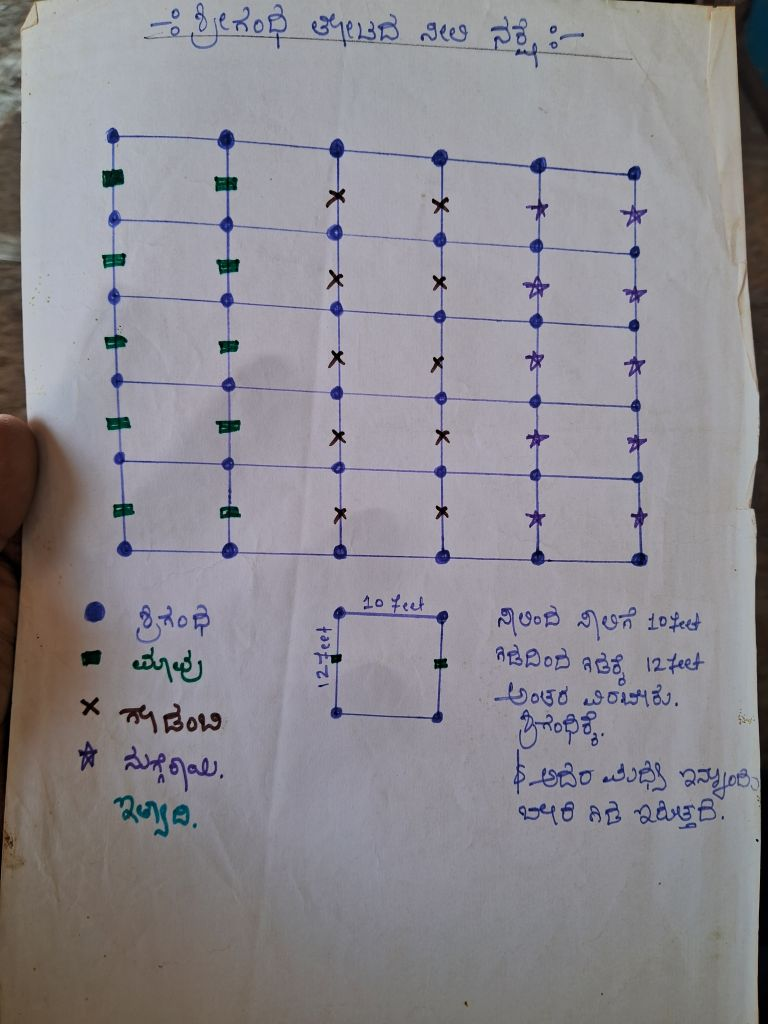 -: ಶ್ರೀಗಂಧ ತೋಟದ ನೀಲಿ ನಕ್ಷೆ :-
ಶ್ರೀಗಂಧ
ಮಾವು
ಗೋಡಂಬಿ
ನುಗ್ಗೆಕಾಯಿ.
ಇತ್ಯಾದಿ.
10 feet
12 feet
ಸಾಲಿಂದ ಸಾಲಿಗೆ 10 feet
ಗಿಡದಿಂದ ಗಿಡಕ್ಕೆ 12 feet
ಅಂತರ ವಿರಬೇಕು.
ಶ್ರೀಗಂಧಕ್ಕೆ.
ಅದರ ಮಧ್ಯೆ ಇನ್ನೊಂದು
ಬೇರೆ ಗಿಡ ಇರುತ್ತದೆ.